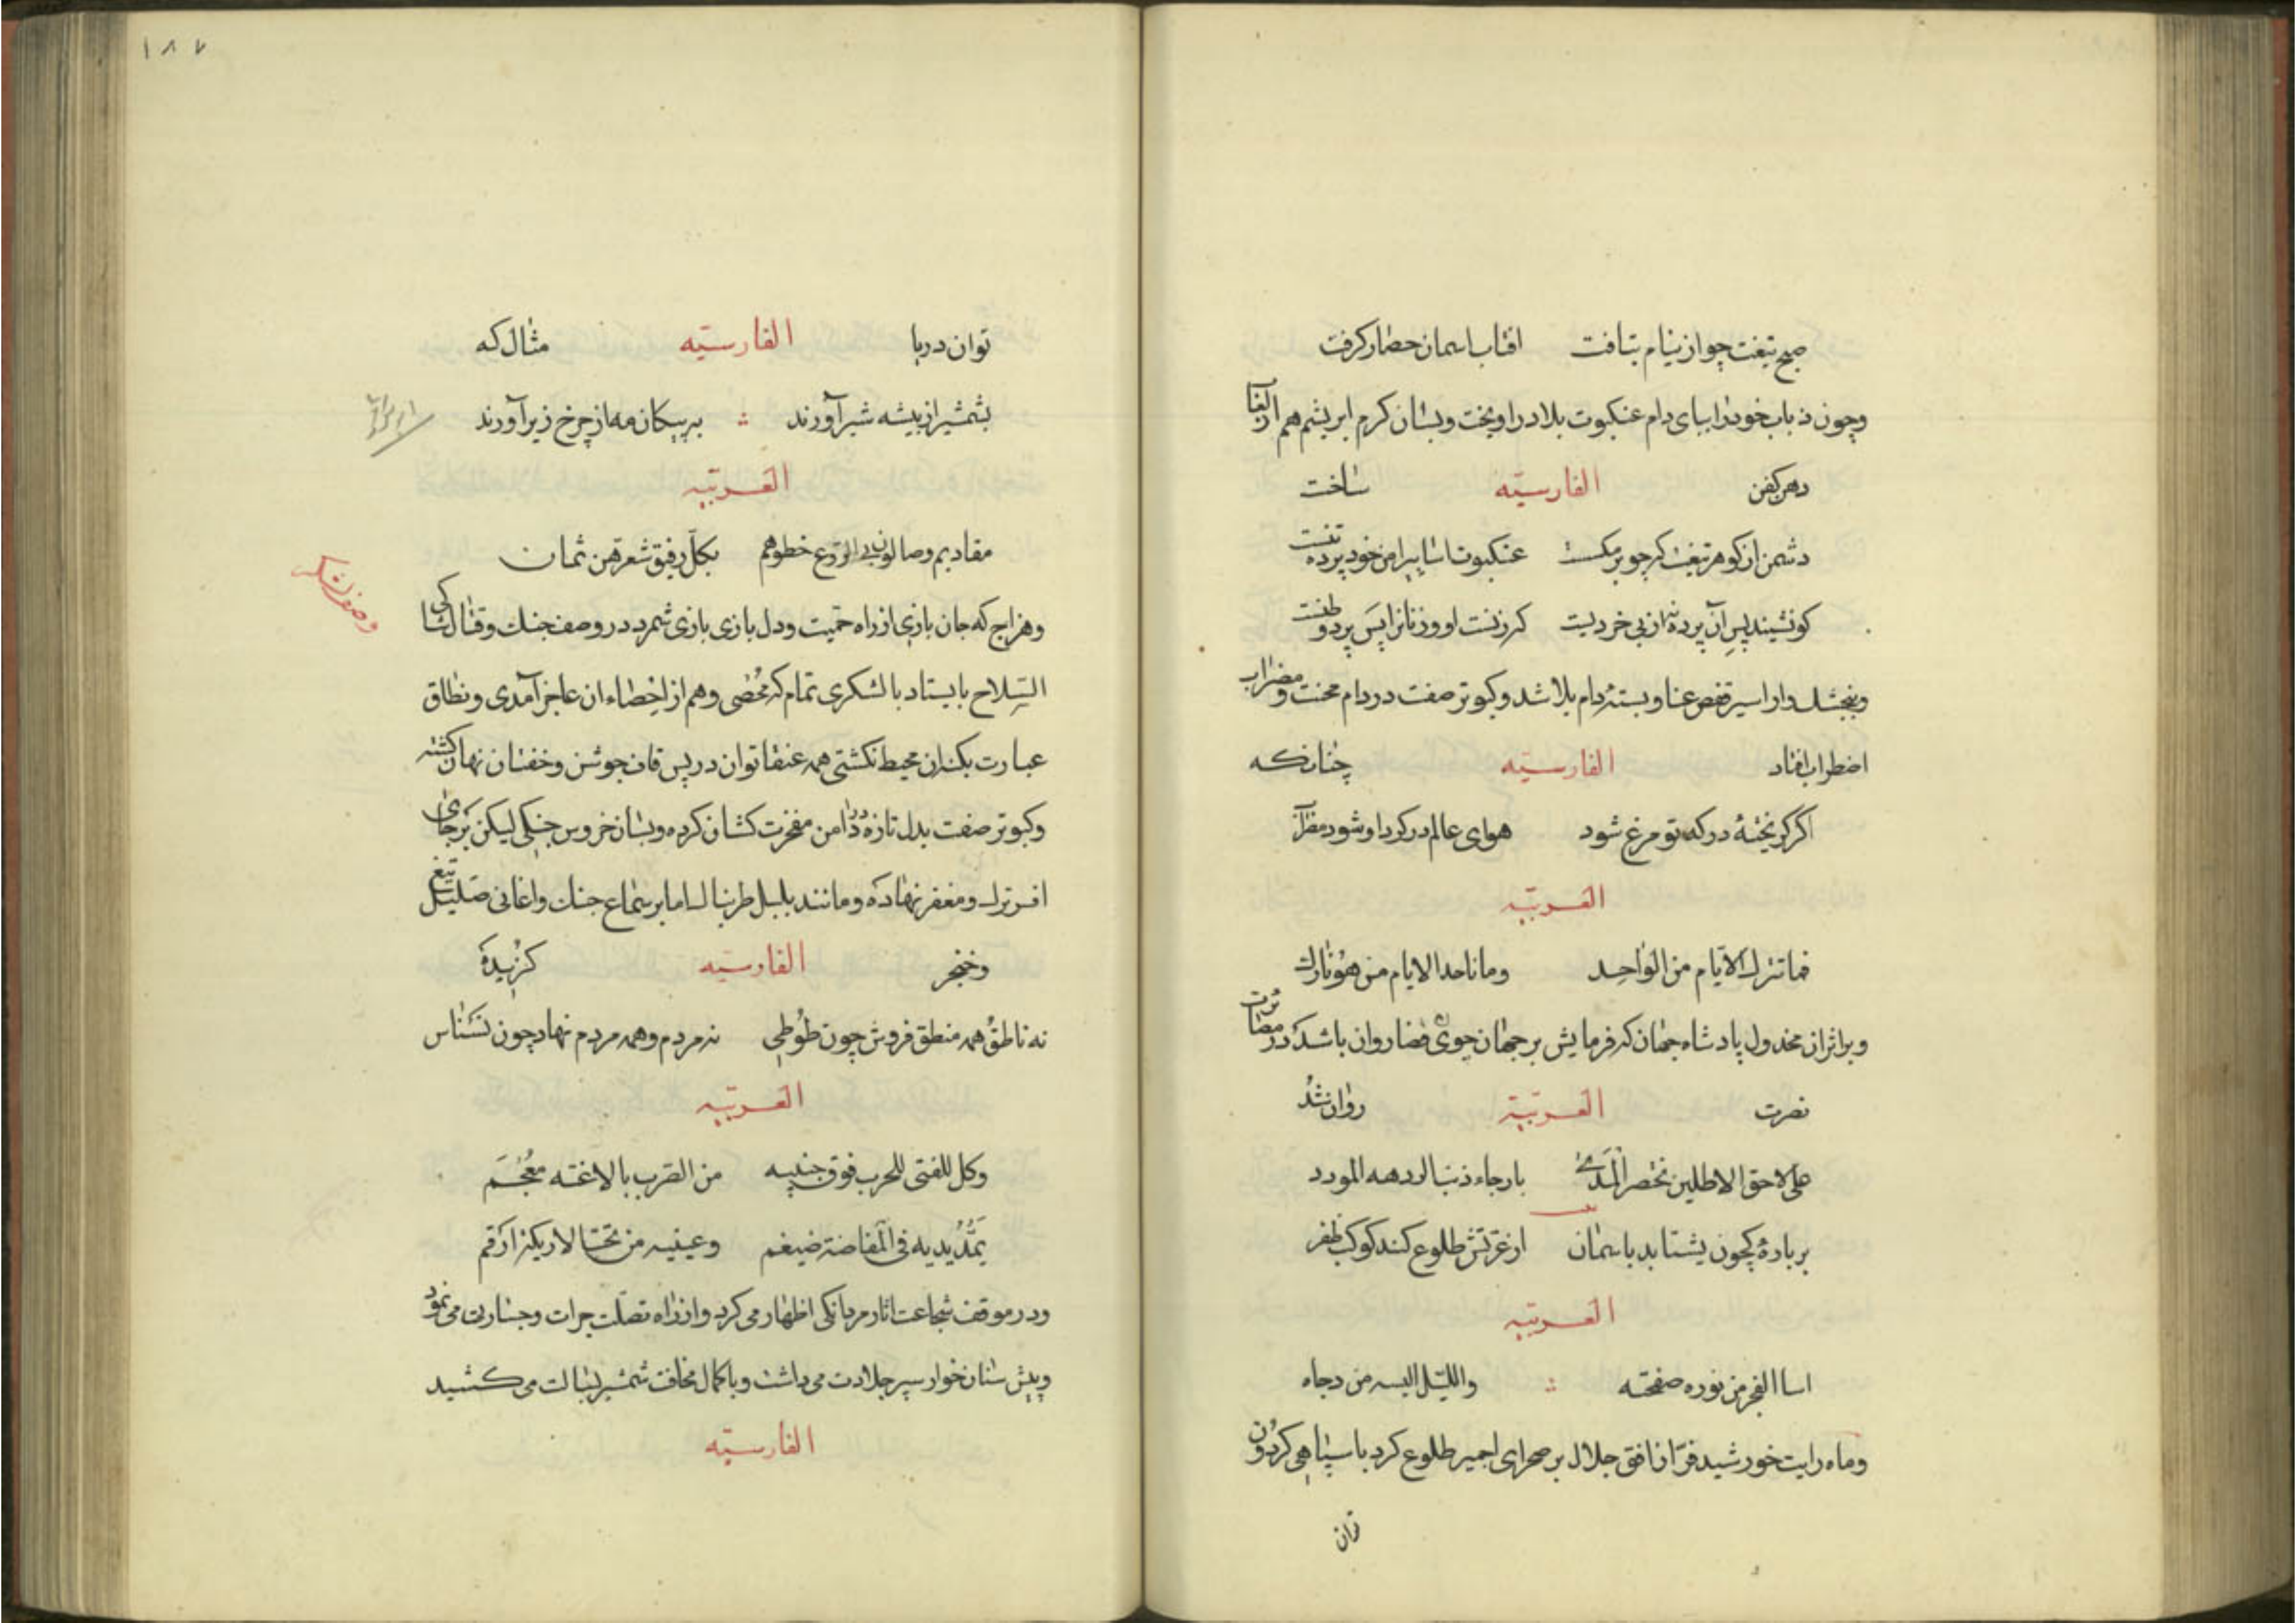 صبح تیغت چو از نیام بتافت افتاب اسمان حصار کرفت
وچون ذباب خود را بپای دام عنکبوت بلا در اویخت وبسان کرم ابریشم هم
دهر کفن الفارسیّه ساخت
دشمن از کوهر تیغت که چو پر مکست عنکبوت اسا پیرامن خود پرده تنست
کو نشیند پس آن پرده نه از بی خردیست کرزنست او وزنانرا پس پرده وطنست
وبنجشک وار اسیر قفص عنا و بستۀ دام بلا شد وکبوتر صفت در دام محنت و مضراب
اضطراب افتاد الفارسیّه چنانکه
اکر کریختۀ درکه تو مرغ شود هوای عالم در کرد او شود
العربیّه
فما تترك الایام من الواحد وما ناحد الایام من هو تارك
وبر اثر ان مخدول پادشاه جهان که فرمایش بر جهان چون قضا روان باشد در
نصرت العربیّة روان شد
علی لاحق الاطلین
بر بادۀ کچون بشتابد باسمان از غرتش طلوع کند کوکب ظفر
العربیّه
اسا الفجر من نوره صفحته واللیل الیسه من دجاه
وماه رایت خورشید فر از افق جلال بر صحرای اجمیر طلوع کرد با سپاهی کردون
توان
۱۸۷
توان دریا الفارسیّه مثال که
بشمشیر از بیشه شیر آورند به پیکان مه از چرخ زیر آورند
العربیّه
مقادیم وصالون فی الروع خطوهم بکلّ رقیق شفرتین ثمان
وهراج که جان بازی از راه حمیت ودل بازی بازی شمرد در وصف جنک وقتال
وصف لشکر
السلاح بایستاد با لشکری تمام که محصی وهم از احصاء ان عاجز آمدی ونطاق
عبارت بکران محیط نکشتی همه عنقا توان در پس قاف جوشن وخفتان نهان کشته
وکبوتر صفت بدل تازه دامن مفخرت کشان کرده وبسان خروس جنکی لیکن بر جای
افسر ترک ومغفر نهاده ومانند بلبل طربناک اما بر سماع جنک واغانی صلیل تیغ
وخنجر الفارسیّه کزیدۀ
نه ناطق همه منطق فروش چون طوطی نه مردم وهمه مردم نهاد چون نسناس
العربیّه
وکل للفتی للحرب فوق جنبیه من الضرب بالاغته معجم
یمد یدیه فی المفاضة ضیغم وعینیه من تحت الاریکة ارقم
ودر موقف شجاعت اثار مردانکی اظهار می کرد واز راه تصلت جرات وجسارت می نمود
وپیش سنان خوار سپر جلادت می داشت وباکمال مخافت شمشیر بسالت می کشید
الفارسیّه